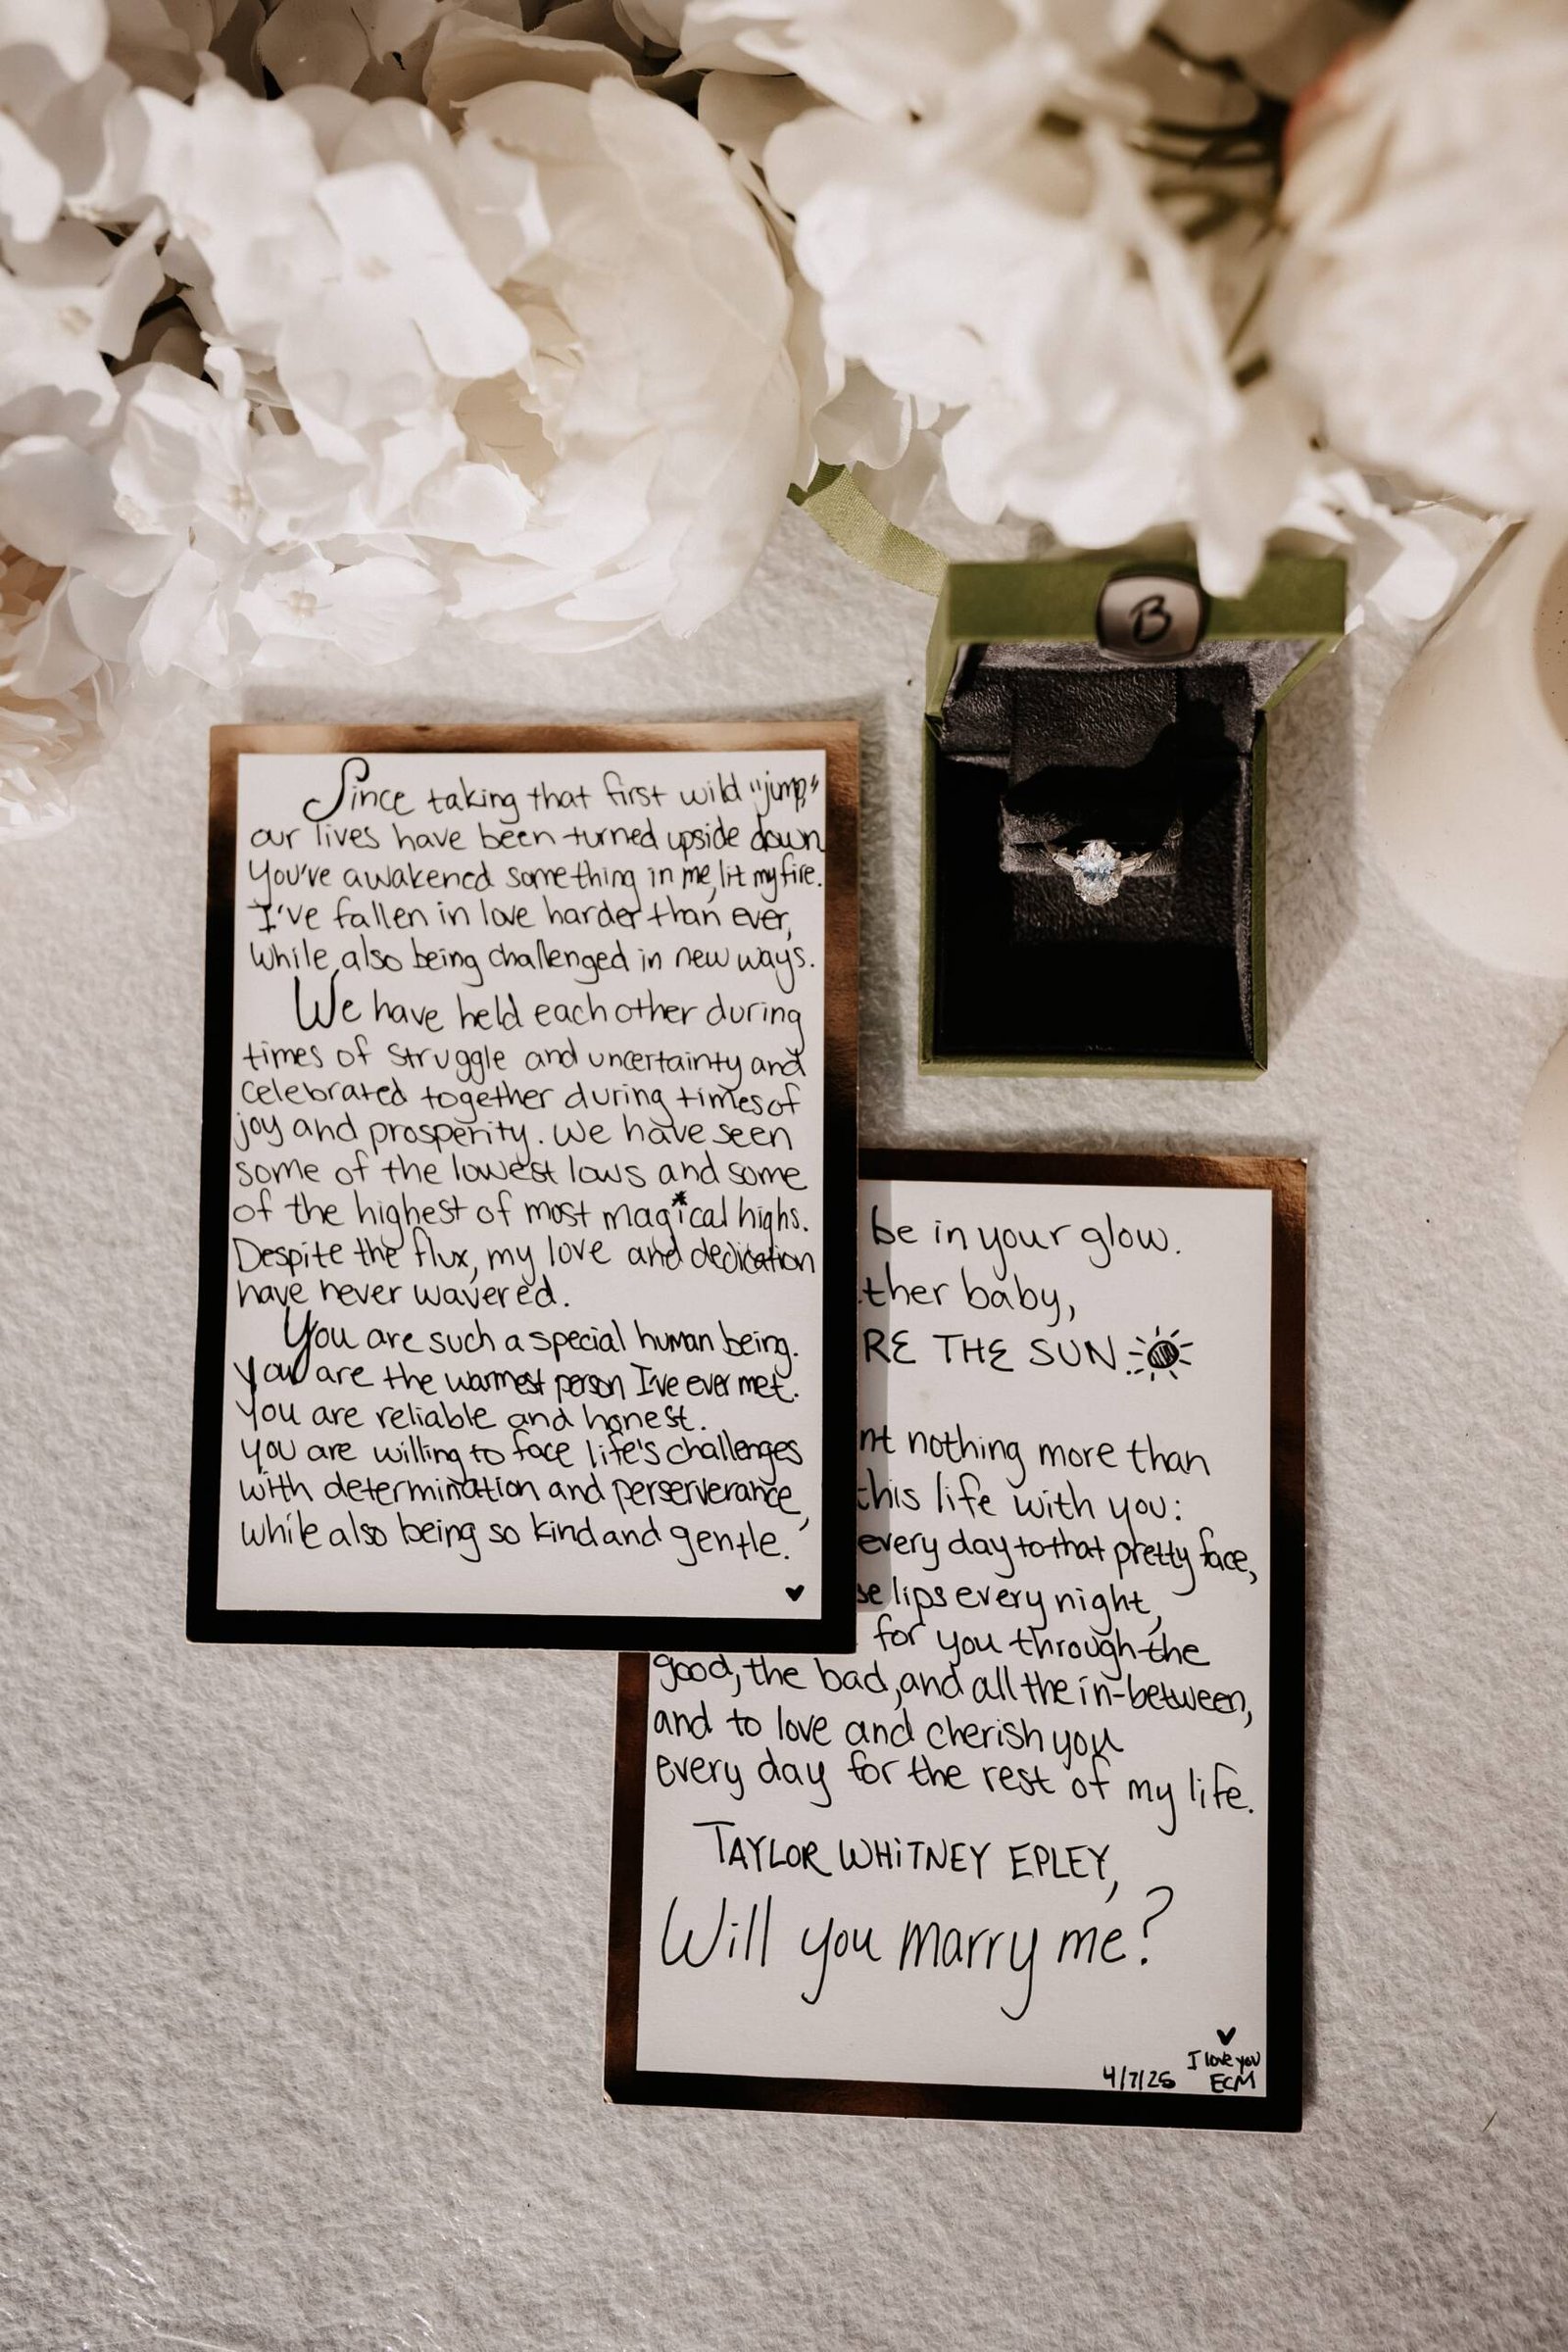 B
Since taking that first wild "jump,"
our lives have been turned upside down.
You've awakened something in me, lit my fire.
I've fallen in love harder than ever,
while also being challenged in new ways.
We have held each other during
times of struggle and uncertainty and
celebrated together during times of
joy and prosperity. We have seen
some of the lowest lows and some
of the highest of most magical highs.
Despite the flux, my love and dedication
have never wavered.
You are such a special human being.
You are the warmest person I've ever met.
You are reliable and honest.
You are willing to face life's challenges
with determination and perserverance,
while also being so kind and gentle.
be in your glow.
ther baby,
RE THE SUN
nt nothing more than
this life with you:
every day to that pretty face,
se lips every night,
for you through the
good, the bad, and all the in-between,
and to love and cherish you
every day for the rest of my life.
TAYLOR WHITNEY EPLEY,
Will you marry me?
I love you
4/7/25 ECM